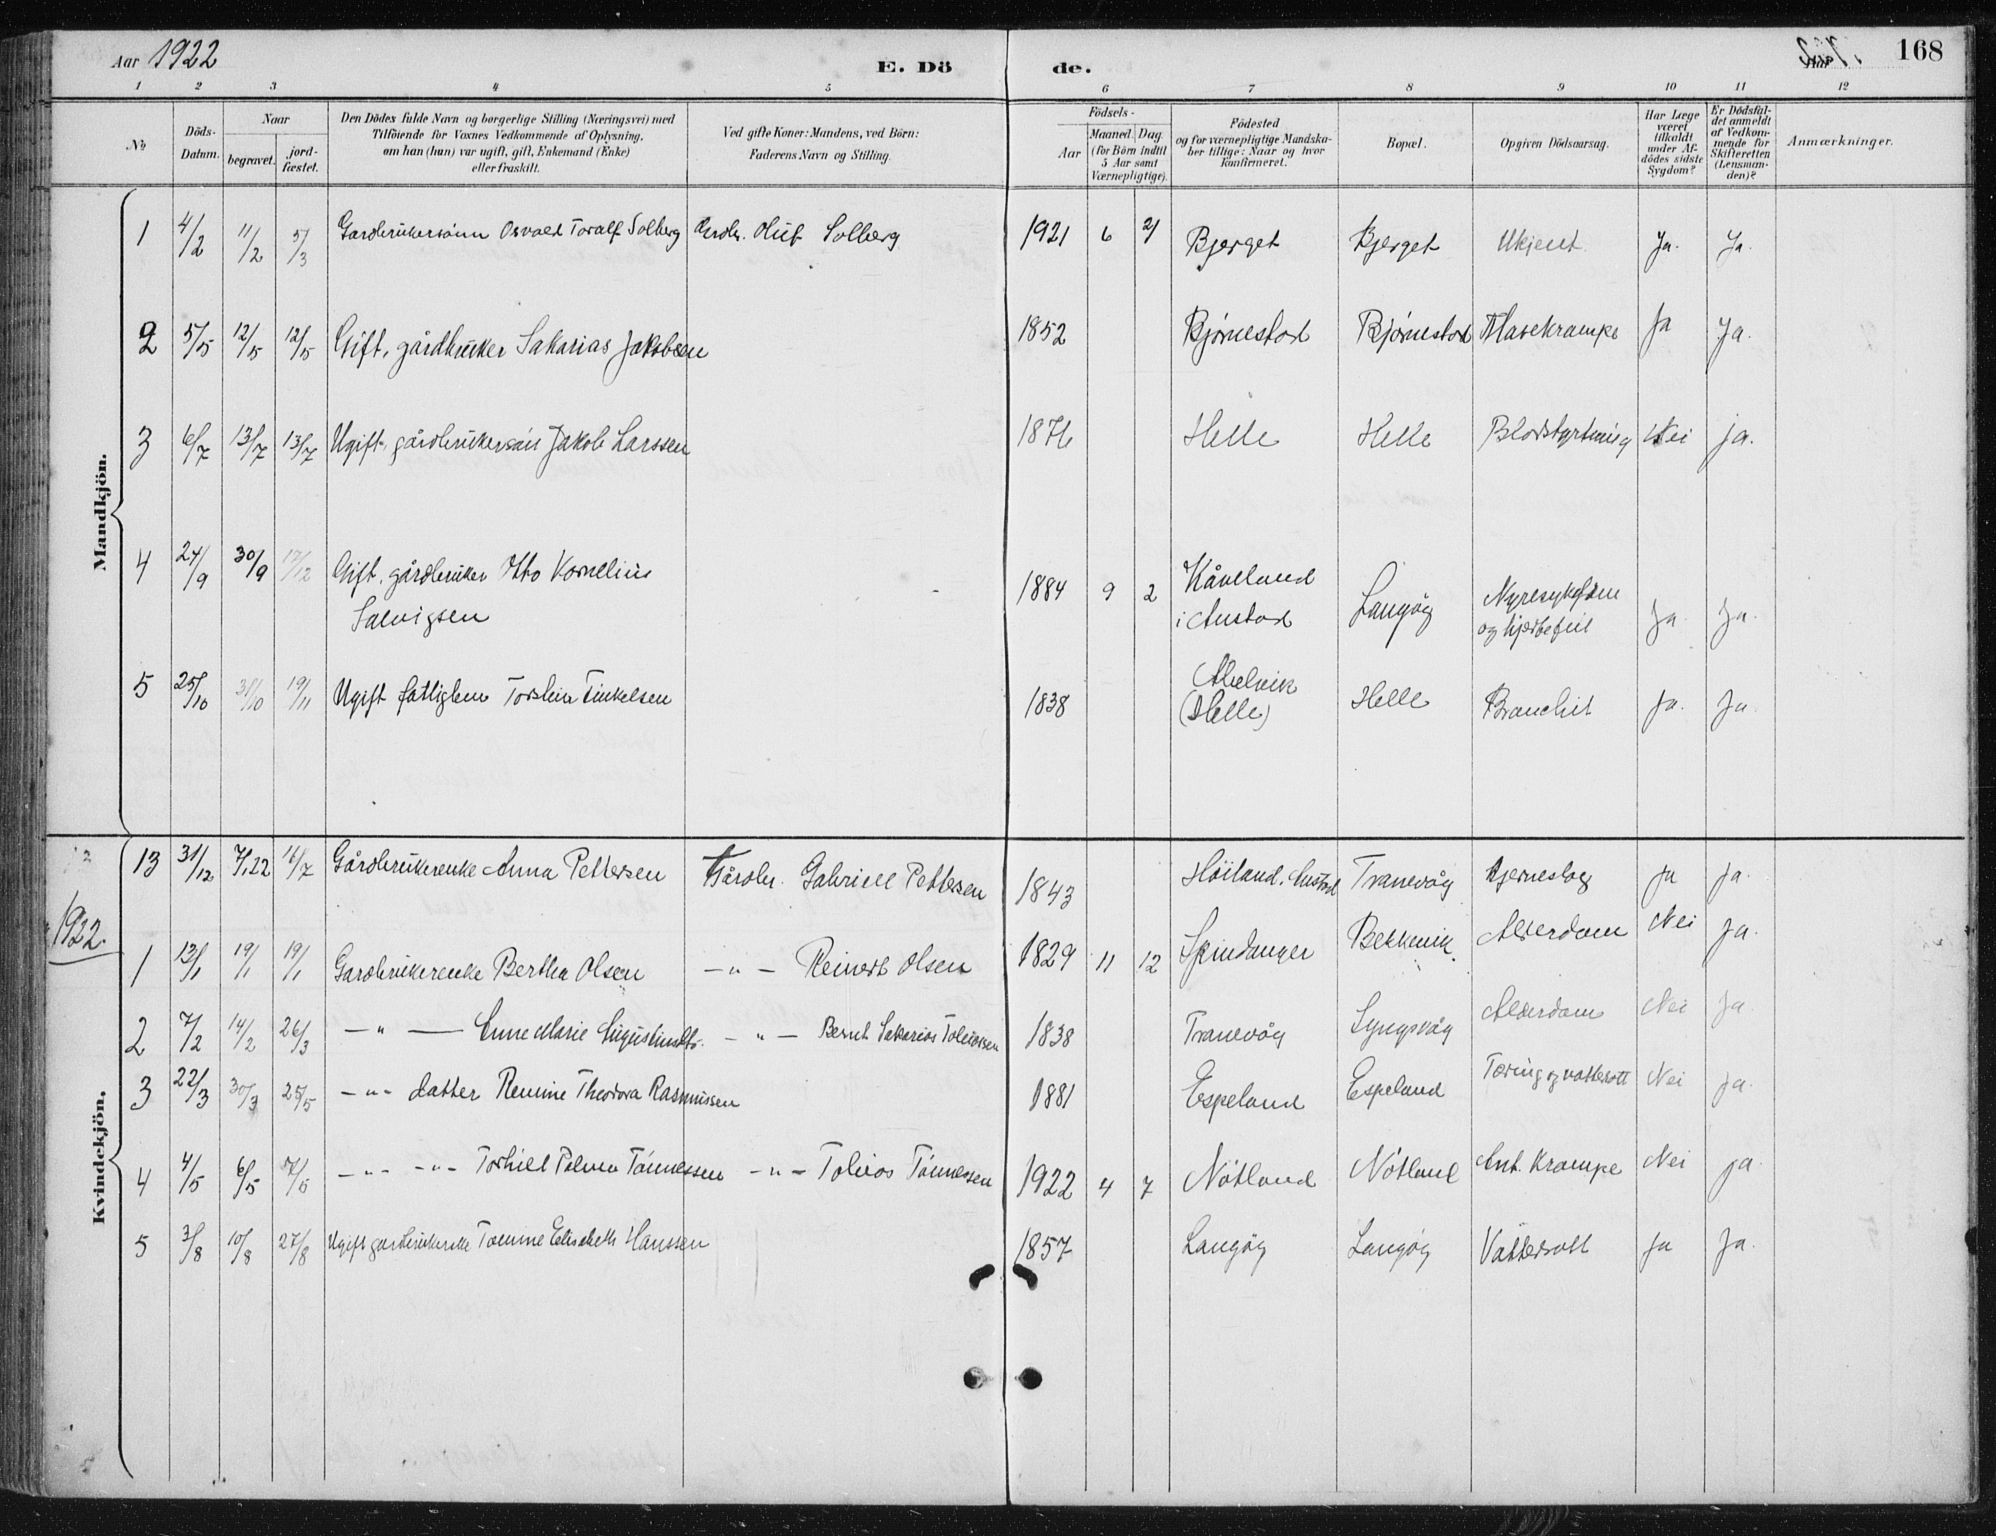 Aar 1922
E. Dö
de.
168
1 2 3 4 5 6 7 8 9 10 11 12
No
Döds-Datum.
Naar
begravet.
jord-fæstet.
Den Dödes fulde Navn og borgerlige Stilling (Næringsvei) med
Tilföiende for Voxnes Vedkommende af Oplysning,
om han (hun) var ugift, gift, Enkemand (Enke)
eller fraskilt.
Ved gifte Koner: Mandens, ved Börn:
Faderens Navn og Stilling.
Födsels-
Aar
Maaned. Dag.
(for Börn indtil
5 Aar samt
Værnepligtige).
Födested
og for værnepligtige Mandska-
ber tillige: Naar og hvor
konfirmeret.
Bopæl.
Opgiven Dödsaarsag.
Har Læge
været
tilkaldt
under Af-
dödes sidste
Sygdom?
Er Dödsfal-
det anmeldt
af Vedkom-
mende for
Skifteretten
(Lensman-
den)?
Anmærkninger.
Mandkjön.
1 4/2 11/2 5/3 Gardbrukersönn Osvald Toralf Solberg Grdbr. Oluf Solberg 1921 6 21 Bjerget Bjerget Ukjent Ja. Ja.
2 5/5 12/5 12/5 Gift, gårdbruker Sakarias Jakobsen 1852 Bjørnestad Bjørnestad Mavekrampe Ja Ja.
3 6/7 13/7 13/7 Ugift, gårdbrukersön Jakob Larssen 1876 Helle Helle Blodstyrtning Nei ja.
4 27/9 30/9 17/12 Gift, gårdbruker Otto Kornelius
Salvigsen 1884 9 2 Kåveland
i Austad Langåg Nyresykdom
og hjertefeil Ja Ja.
5 25/10 31/10 19/11 Ugift fattiglem Torstein Tinkelsen 1838 Aalvik
(Helle) Helle Bronchit Ja. Ja
Kvindekjön.
13 31/12 7/1 22 16/7 Gårdbrukerenke Anna Pettersen Gårdbr. Gabriell Pettersen 1843 Höiland, Austad Tranevåg Hjerneslag Ja Ja.
1922.
1 13/1 19/1 19/1 Gardbrukerenke Bertha Olsen —"— Reinert Olsen 1829 11 12 Spindanger Bekkevik. Alderdom Nei Ja.
2 7/2 14/2 26/3 —"— Anne Marie Augustinsdtr. —"— Bernt Sakarias Tobiassen 1838 Tranevåg Lyngsvåg Alderdom Nei Ja.
3 22/3 30/3 25/5 —"— datter Remine Theodora Rasmussen 1881 Espeland Espeland Tæring og vattersott Nei Ja.
4 4/5 6/5 7/5 —"— —"— Torhild Palma Tönnessen —"— Tobias Tönnessen 1922 4 7 Nötland Nötland Ant. Krampe Nei ja
5 3/8 10/8 27/8 Ugift gardbrukerske Tomine Elisabeth Hanssen 1857 Langåg Langåg Vattersott Ja Ja.